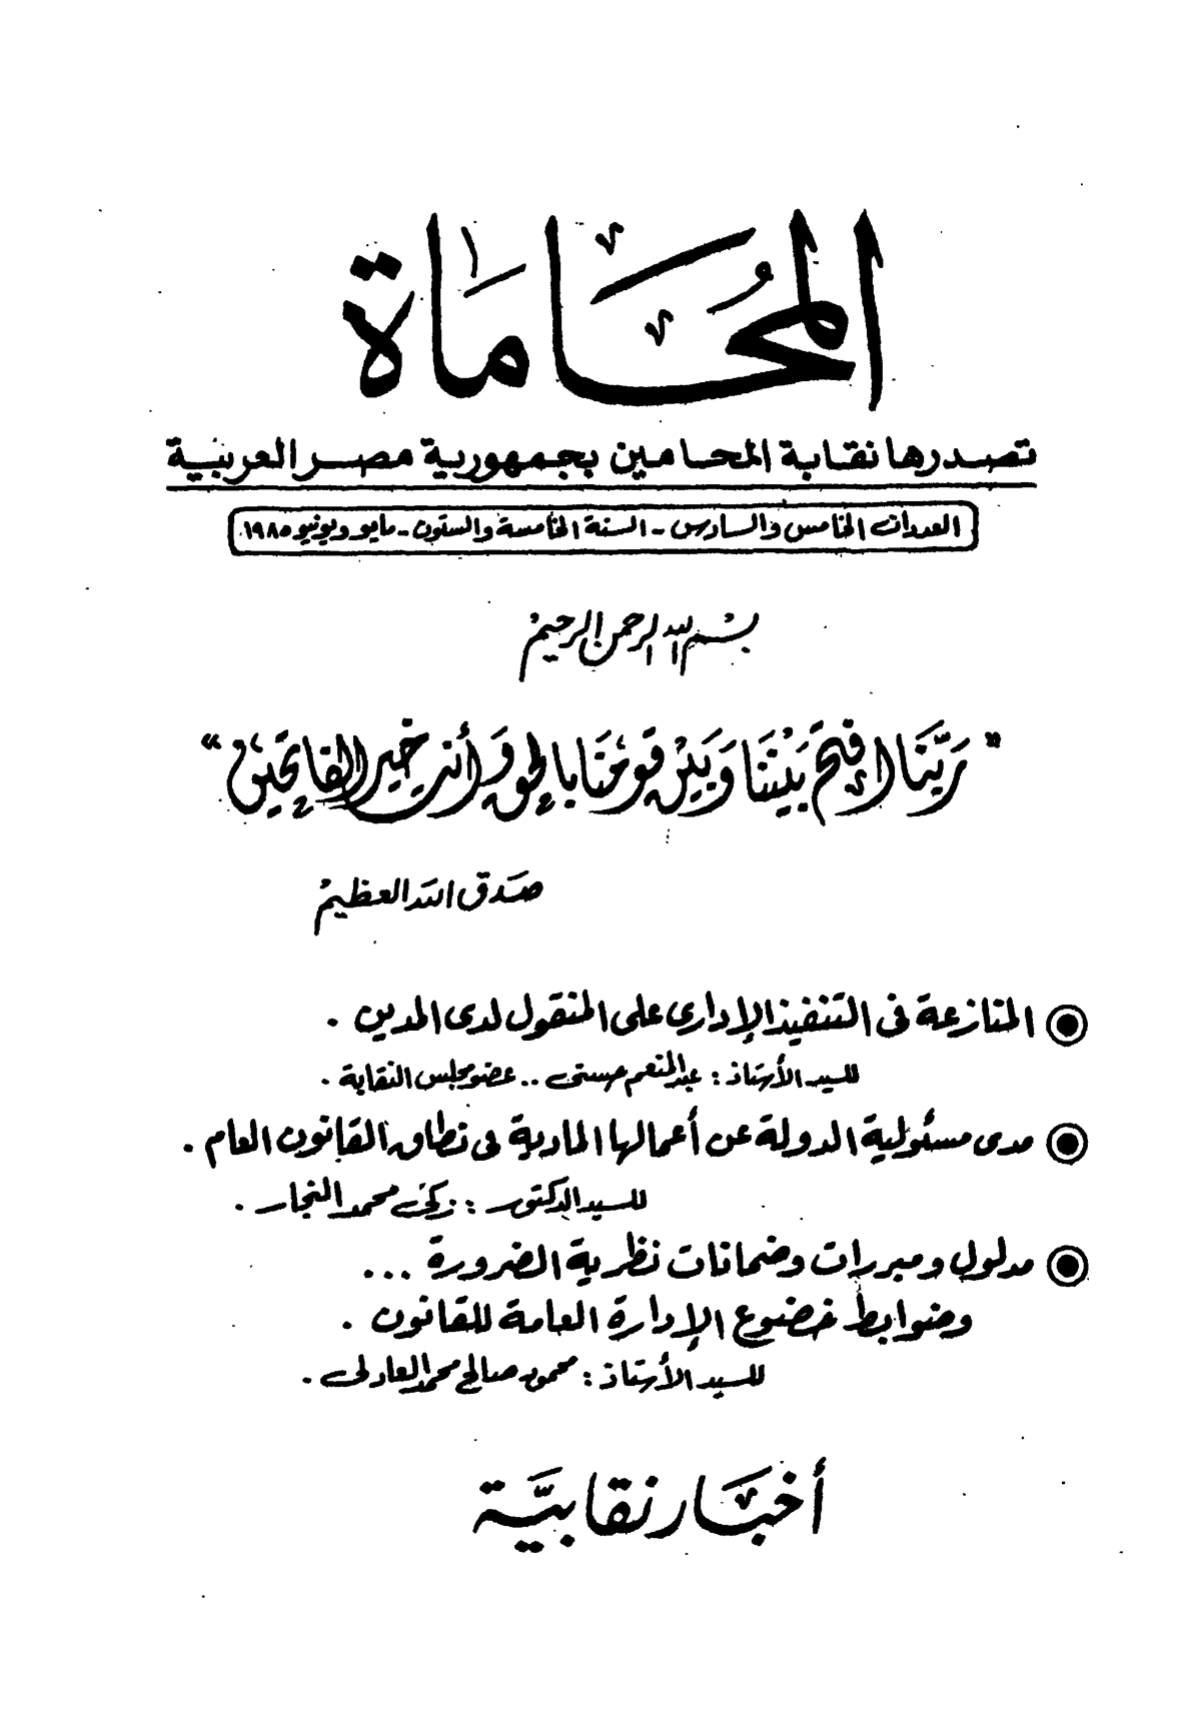 المُحَامَاة
تصدرها نقابة المحامين بجمهورية مصر العربية
العددان الخامس والسادس - السنة الخامسة والستون - مايو ويونيو ١٩٨٥
بسم الله الرحمن الرحيم
" رَبَّنَا افتَح بَيْنَنَا وَبَيْن قَومْنَا بالحق وَأنت خَير الفاتحين "
صَدَق الله العظيم
◉ المنازعة فى التنفيذ الإدارى على المنقول لدى المدين .
للسيد الأستاذ : عبد المنعم حسنى .. عضو مجلس النقابة .
◉ مدى مسئولية الدولة عن أعمالها المادية فى نطاق القانون العام .
للسيد الدكتور : زكى محمد النجار .
◉ مدلول ومبررات وضمانات نظرية الضرورة ...
وضوابط خضوع الإدارة العامة للقانون .
للسيد الأستاذ : محمود صالح محمد العادلى .
أخبَار نقابيَّة